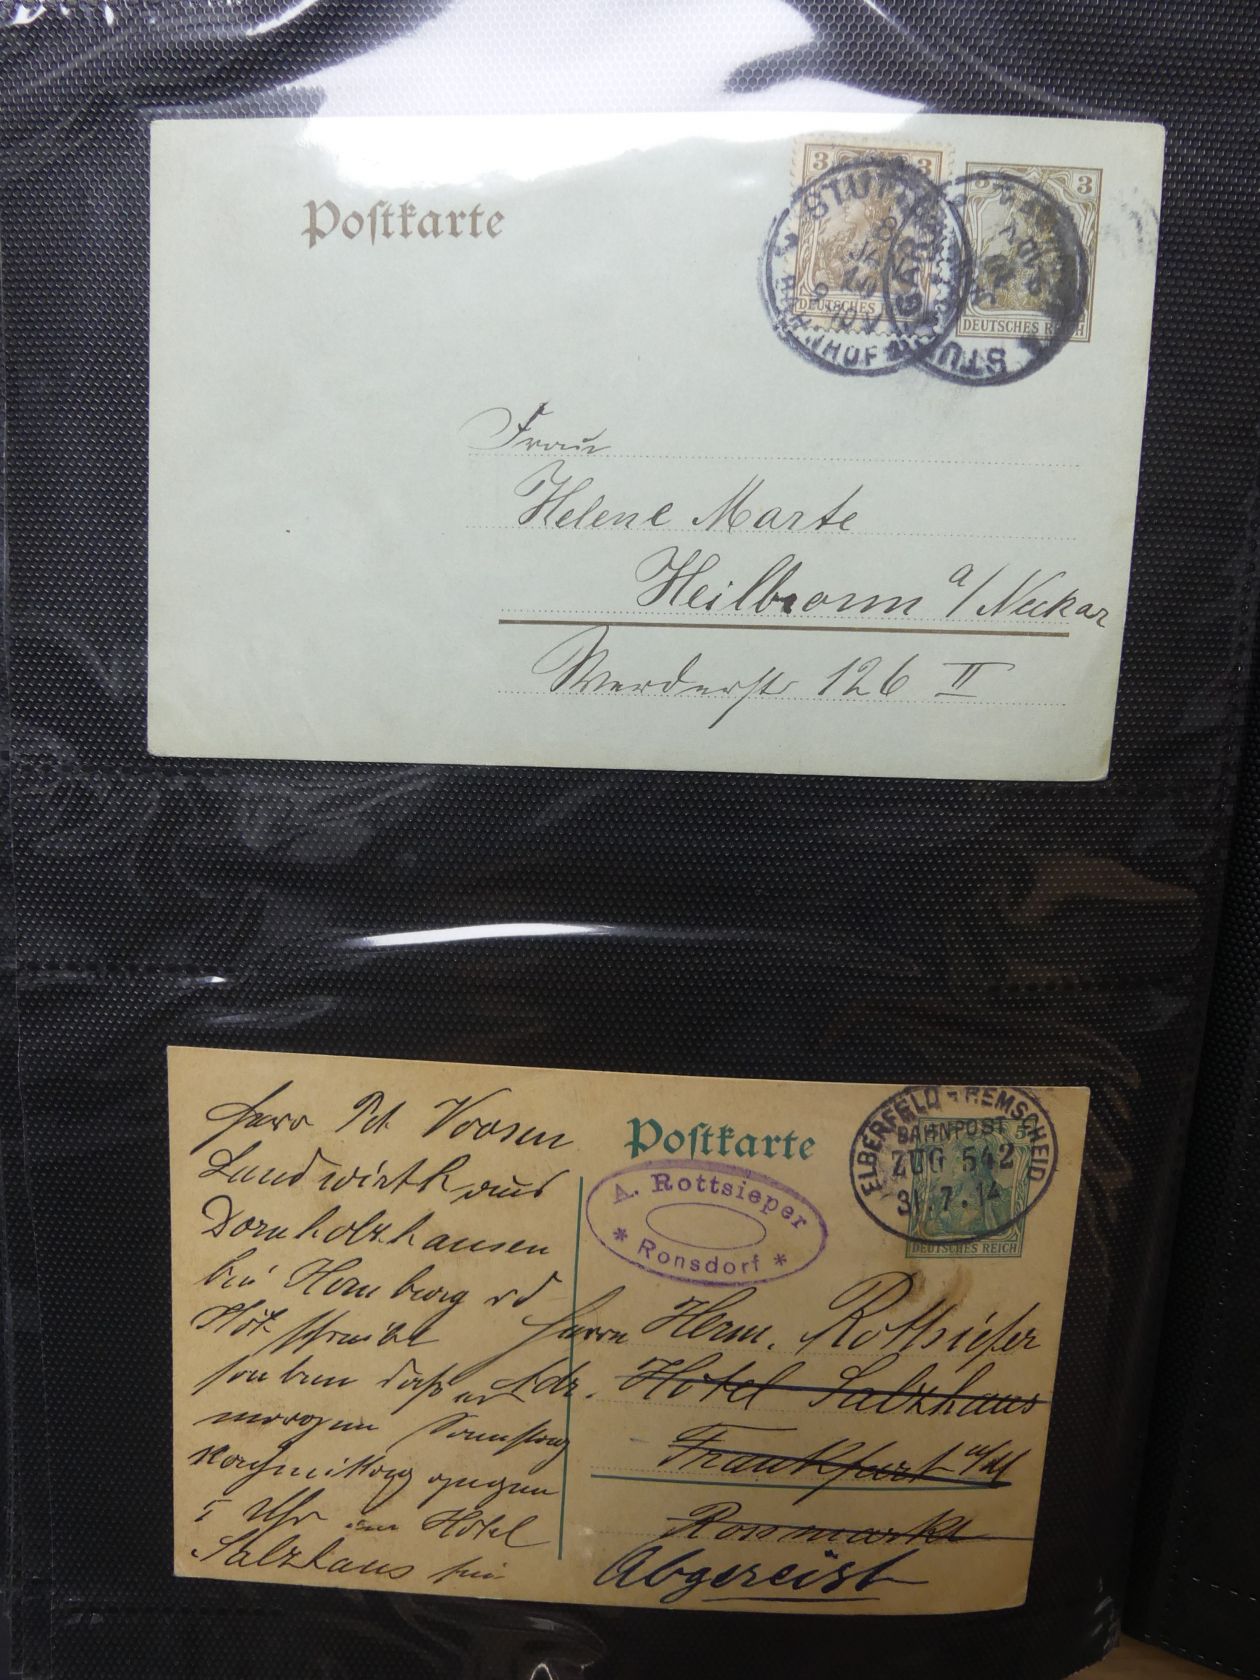 Postkarte
3 3
DEUTSCHES
3
DEUTSCHES REICH
STU
8
BAHNHOF
Frau
Helene Marte
Heilbronn a/Neckar
Werderstr 126 II
Herrn Pet Voosen
Landwirth aus
Dornholzhausen
bei Homburg vd
Höh schreibe
soeben daß er
morgen Samstag
Nachmittag gegen
Uhr im Hotel
Salzhaus sei
Postkarte
A. Rottsieper
* Ronsdorf *
ELBERFELD - REMSCHEID
BAHNPOST
ZUG 542
31.7.14
5
DEUTSCHES REICH
Herrn Herm. Rottsieper
Adr. Hotel Salzhaus
Frankfurt a/M
Rossmarkt
Abgereist